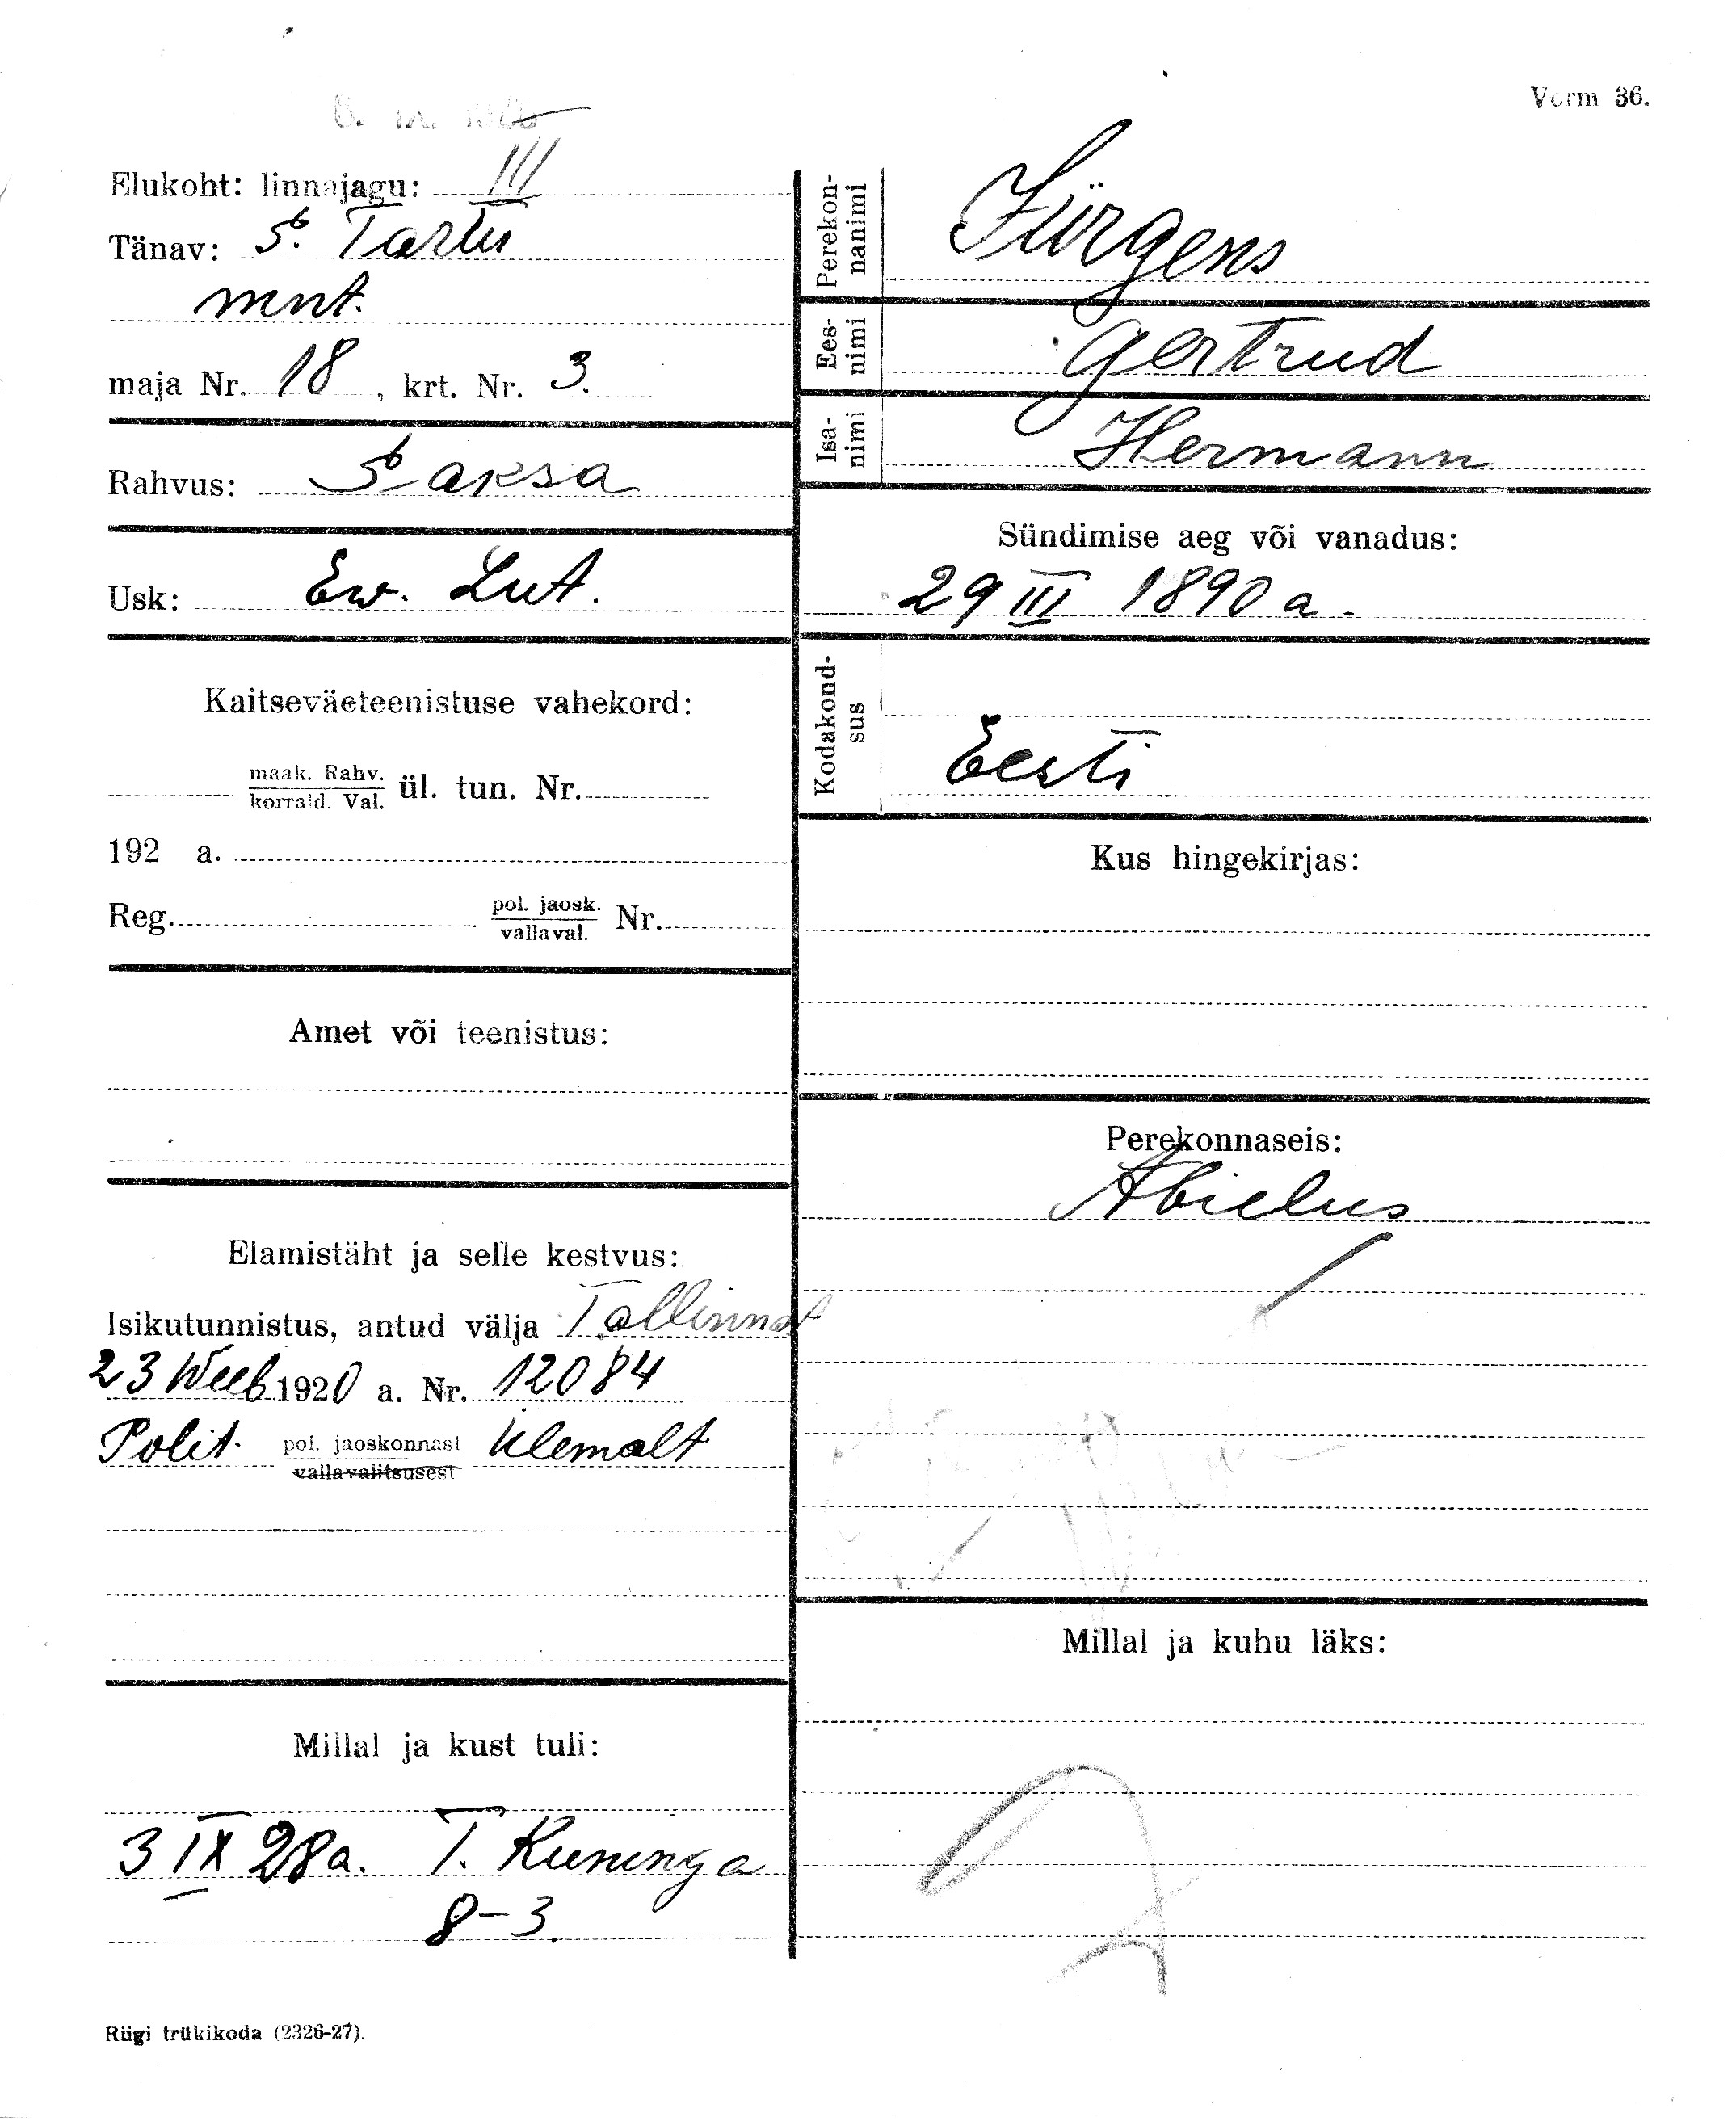 Vorm 36.
Elukoht: linnajagu: III
Tänav: S. Tartu
mnt.
maja Nr. 18, krt. Nr. 3.
Rahvus: Saksa
Usk: Ew. Lut.
Kaitseväeteenistuse vahekord:
maak. Rahv.
korrald. Val. ül. tun. Nr.
192 a.
Reg. pol. jaosk.
vallaval. Nr.
Amet või teenistus:
Elamistäht ja selle kestvus:
Isikutunnistus, antud välja Tallinnat
23 Weeb 1920 a. Nr. 12084
Polit. pol. jaoskonnast Ulemalt
vallavalitsusest
Millal ja kust tuli:
3 IX 28 a. T. Kuninga
8-3.
Perekon-
nanimi
Jürgens
Ees-
nimi
Gertrud
Isa-
nimi
Hermann
Sündimise aeg või vanadus:
29 III 1890 a.
Kodakond-
sus
Eesti
Kus hingekirjas:
Perekonnaseis:
Abielus
Millal ja kuhu läks:
Riigi trükikoda (2326-27).